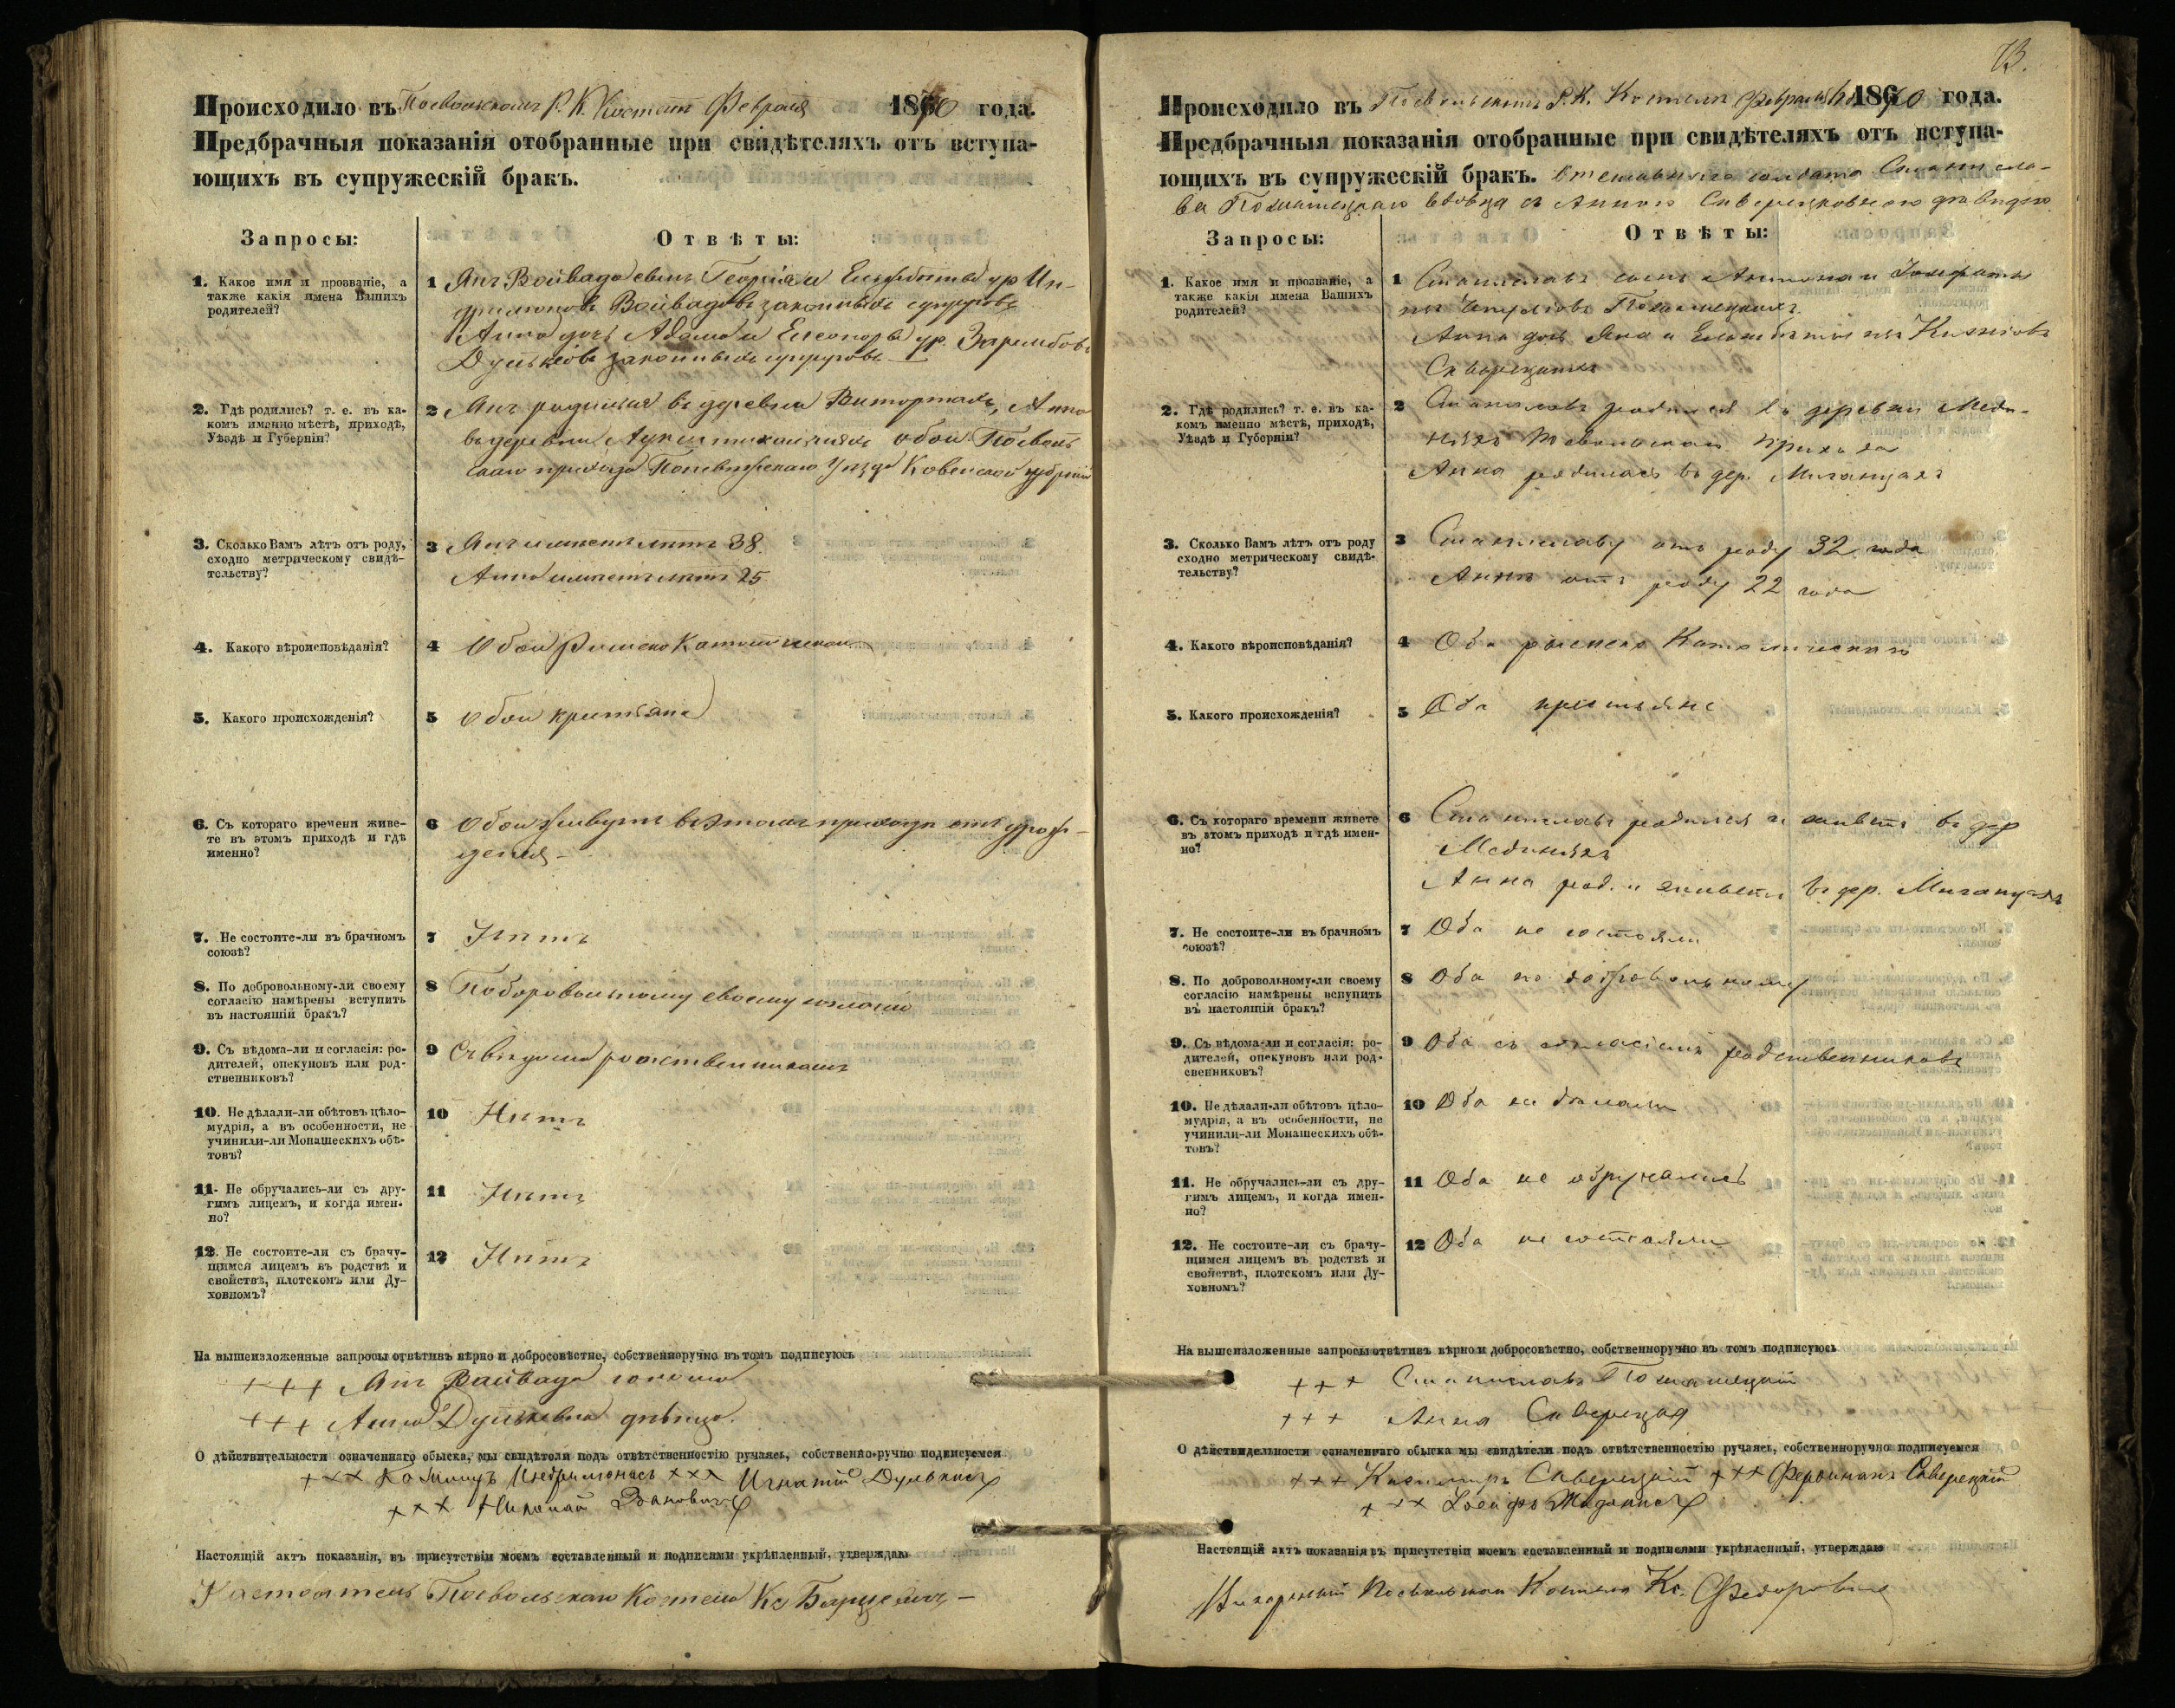 Происходило въ Посвольскомъ Р. К. Костелѣ Февраля 1870 года.
Предбрачныя показанія отобранные при свидѣтеляхъ отъ вступа-
ющихъ въ супружескій бракъ.
Запросы:
Отвѣты:
1. Какое имя и прозваніе, а
также какія имена Вашихъ
родителей?
1 Янъ Войвада сынъ Георгія и Елисабеты ур Ин-
Войвадовъ законныхъ супруговъ
Анна дочь Адама и Елеоноры ур. Зарембовъ
законныхъ супруговъ
2. Гдѣ родились? т. е. въ ка-
комъ именно мѣстѣ, приходѣ,
Уѣздѣ и Губерніи?
2 Янъ родился въ деревни Анна
въ деревни обои Посволь
скаго прихода Поневѣжскаго Уѣзда Ковенской губерніи
3. Сколько Вамъ лѣтъ отъ роду,
сходно метрическому свидѣ-
тельству?
3 Янъ имѣетъ лѣтъ 38.
Анна имѣетъ лѣтъ 25
4. Какого вѣроисповѣданія?
4 Обои Римско Католическаго
5. Какого происхожденія?
5 Обои крестьяне
6. Съ котораго времени живе-
те въ этомъ приходѣ и гдѣ
именно?
6 Обои живутъ въ этомъ приходѣ отъ урож-
денія
7. Не состоите-ли въ брачномъ
союзѣ?
7 Нѣтъ
8. По добровольному-ли своему
согласію намѣрены вступить
въ настоящій бракъ?
8 По добровольному своему согласію
9. Съ вѣдома-ли и согласія: ро-
дителей, опекуновъ или род-
ственниковъ?
9 Съ вѣдома родственниковъ
10. Не дѣлали-ли обѣтовъ цѣло-
мудрія, а въ особенности, не
учинили-ли Монашескихъ обѣ-
товъ?
10 Нѣтъ
11. Не обручались-ли съ дру-
гимъ лицемъ, и когда имен-
но?
11 Нѣтъ
12. Не состоите-ли съ брачу-
щимся лицемъ въ родствѣ и
свойствѣ, плотскомъ или Ду-
ховномъ?
12 Нѣтъ
На вышеизложенные запросы отвѣтивъ вѣрно и добросовѣстно, собственноручно въ томъ подписуюсь
+++ Янъ Войвада юноша
+++ Анна дѣвица.
О дѣйствительности означеннаго обыска, мы свидѣтели подъ отвѣтственностію ручаясь, собственно-ручно подписуемся
+++ Казимиръ +++ Игнатій
+++
Настоящій актъ показанія, въ присутствіи моемъ составленный и подписями укрѣпленный, утверждаю
Настоятель Посвольскаго Костела Кс
73.
Происходило въ Посвольскомъ Р. К. Костелѣ Февраля 1870 года.
Предбрачныя показанія отобранные при свидѣтеляхъ отъ вступа-
ющихъ въ супружескій бракъ. Отставнаго солдата Станисла-
ва вдовца съ Анною дѣвицею
Запросы:
Отвѣты:
1. Какое имя и прозваніе, а
также какія имена Вашихъ
родителей?
1 Станиславъ сынъ Антона и
Анна дочь Яна и Елисабеты изъ
2. Гдѣ родились? т. е. въ ка-
комъ именно мѣстѣ, приходѣ,
Уѣздѣ и Губерніи?
2 Станиславъ родился въ деревни Меди-
няхъ Посвольскаго Прихода
Анна родилась въ дер. Миганцахъ
3. Сколько Вамъ лѣтъ отъ роду
сходно метрическому свидѣ-
тельству?
3 Станиславу отъ роду 32 года
Аннѣ отъ роду 22 года
4. Какого вѣроисповѣданія?
4 Оба римско Католическаго
5. Какого происхожденія?
5 Оба крестьяне
6. Съ котораго времени живете
въ этомъ приходѣ и гдѣ имен-
но?
6 Станиславъ родился и живетъ въ дер
Мединяхъ
Анна род. и живетъ въ дер. Миганцахъ
7. Не состоите-ли въ брачномъ
союзѣ?
7 Оба не состояли
8. По добровольному-ли своему
согласію намѣрены вступить
въ настоящій бракъ?
8 Оба по добровольному
9. Съ вѣдома-ли и согласія: ро-
дителей, опекуновъ или род-
свенниковъ?
9 Оба съ согласіемъ родственниковъ
10. Не дѣлали-ли обѣтовъ цѣло-
мудрія, а въ особенности, не
учинили-ли Монашескихъ обѣ-
товъ?
10 Оба не дѣлали
11. Не обручались-ли съ дру-
гимъ лицемъ, и когда имен-
но?
11 Оба не обручались
12. Не состоите-ли съ брачу-
щимся лицемъ въ родствѣ и
свойствѣ, плотскомъ или Ду-
ховномъ?
12 Оба не состояли
На вышеизложенные запросы отвѣтивъ вѣрно и добросовѣстно, собственноручно въ томъ подписуюсь
+++ Станиславъ
+++ Анна Скверецкая
О дѣйствидельности означеннаго обыска мы свидѣтели подъ отвѣтственностію ручаясь, собственноручно подписуемся
+++ Казимиръ Скверецкій +++ Фердинанъ Скверецкій
+++ Іосифъ
Настоящій актъ показанія въ присутствіи моемъ составленный и подписями укрѣпленный, утверждаю
Викарный Посвольскаго Костела Кс. Федоровичъ